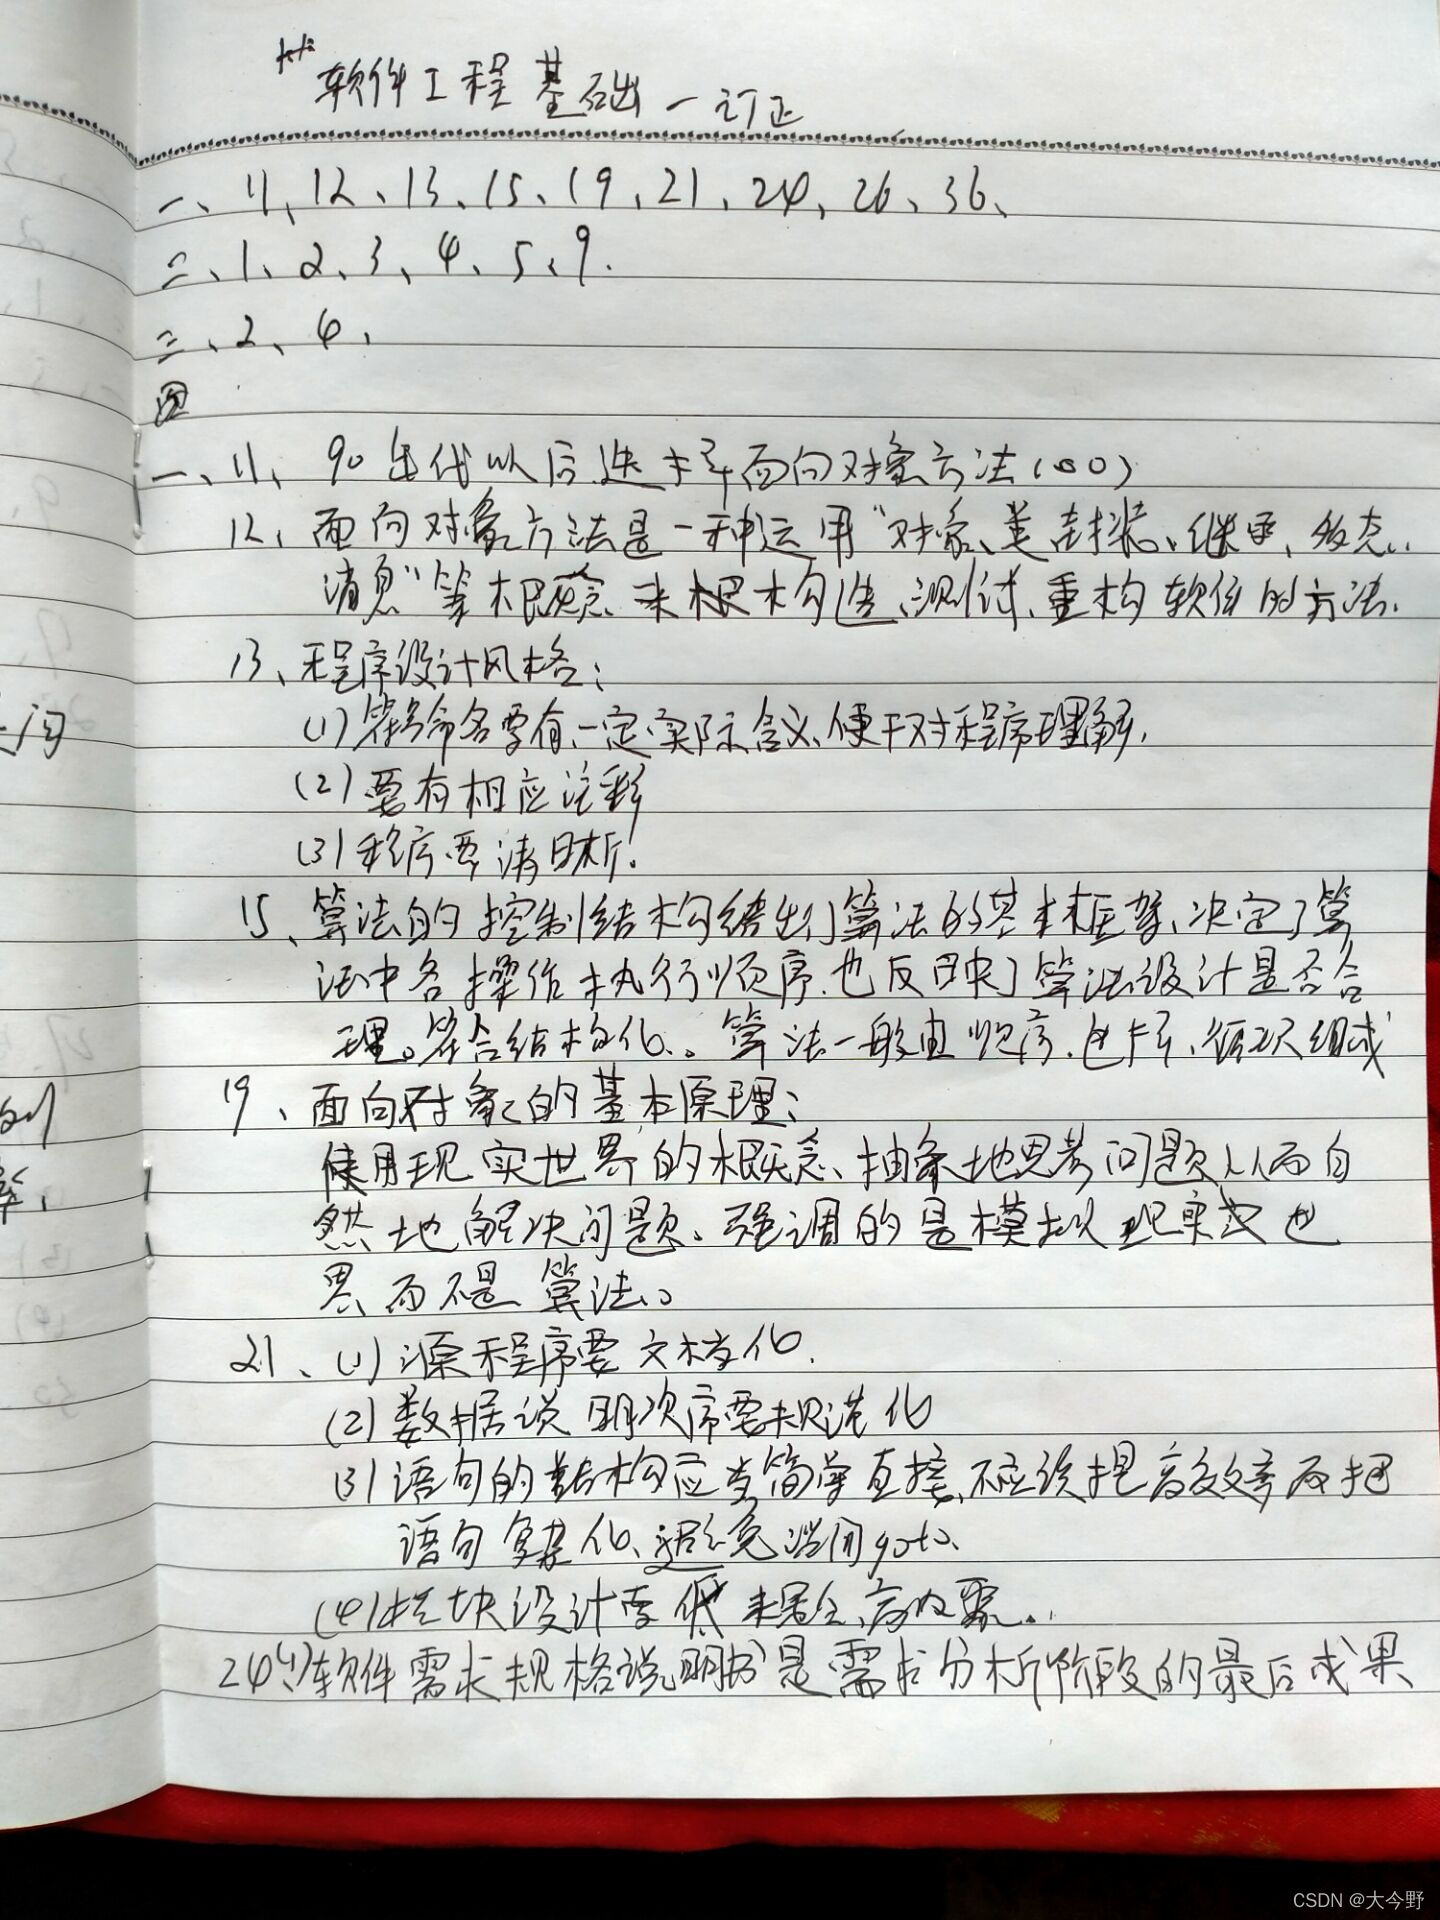 ** 软件工程基础—订正
一、11、12、13、15、19、21、24、26、36、
二、1、2、3、4、5、9.
三、2、4、
四
一、11、90年代以后选择面向对象方法(OO)
12、面向对象方法是一种运用"对象、类、封装、继承、多态、
消息"等概念来构造、测试、重构软件的方法.
13、程序设计风格:
(1)符号命名要有一定实际含义、便于对程序理解.
(2)要有相应注释
(3)程序要清晰.
15、算法的控制结构给出了算法的基本框架、决定了算
法中各操作执行顺序.也反映了算法设计是否合
理。符合结构化。算法一般由顺序.选择、循环组成
19、面向对象的基本原理:
使用现实世界的概念、抽象地思考问题从而自
然地解决问题、强调的是模拟现实世
界而不是算法。
21、(1)源程序要文档化.
(2)数据说明次序要规范化
(3)语句的结构应当简单直接、不应该提高效率而把
语句复杂化、避免滥用goto.
(4)模块设计要低耦合、高内聚.
24(1)软件需求规格说明书是需求分析阶段的最后成果
CSDN @大今野